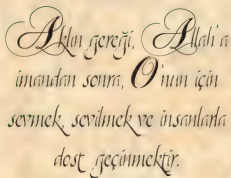 Aklın gereği, Allah'a
imandan sonra, O'nun için
sevmek, sevilmek ve insanlarla
dost geçinmektir.